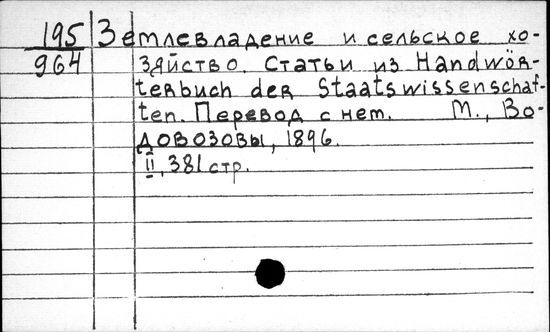 195 Землевладение и сельское хо-
964 зяйство. Статьи из Handwör-
terbuch der Staatswissenschaf-
ten. Перевод с нем. М., Во-
довозовы, 1896.
II, 381 стр.